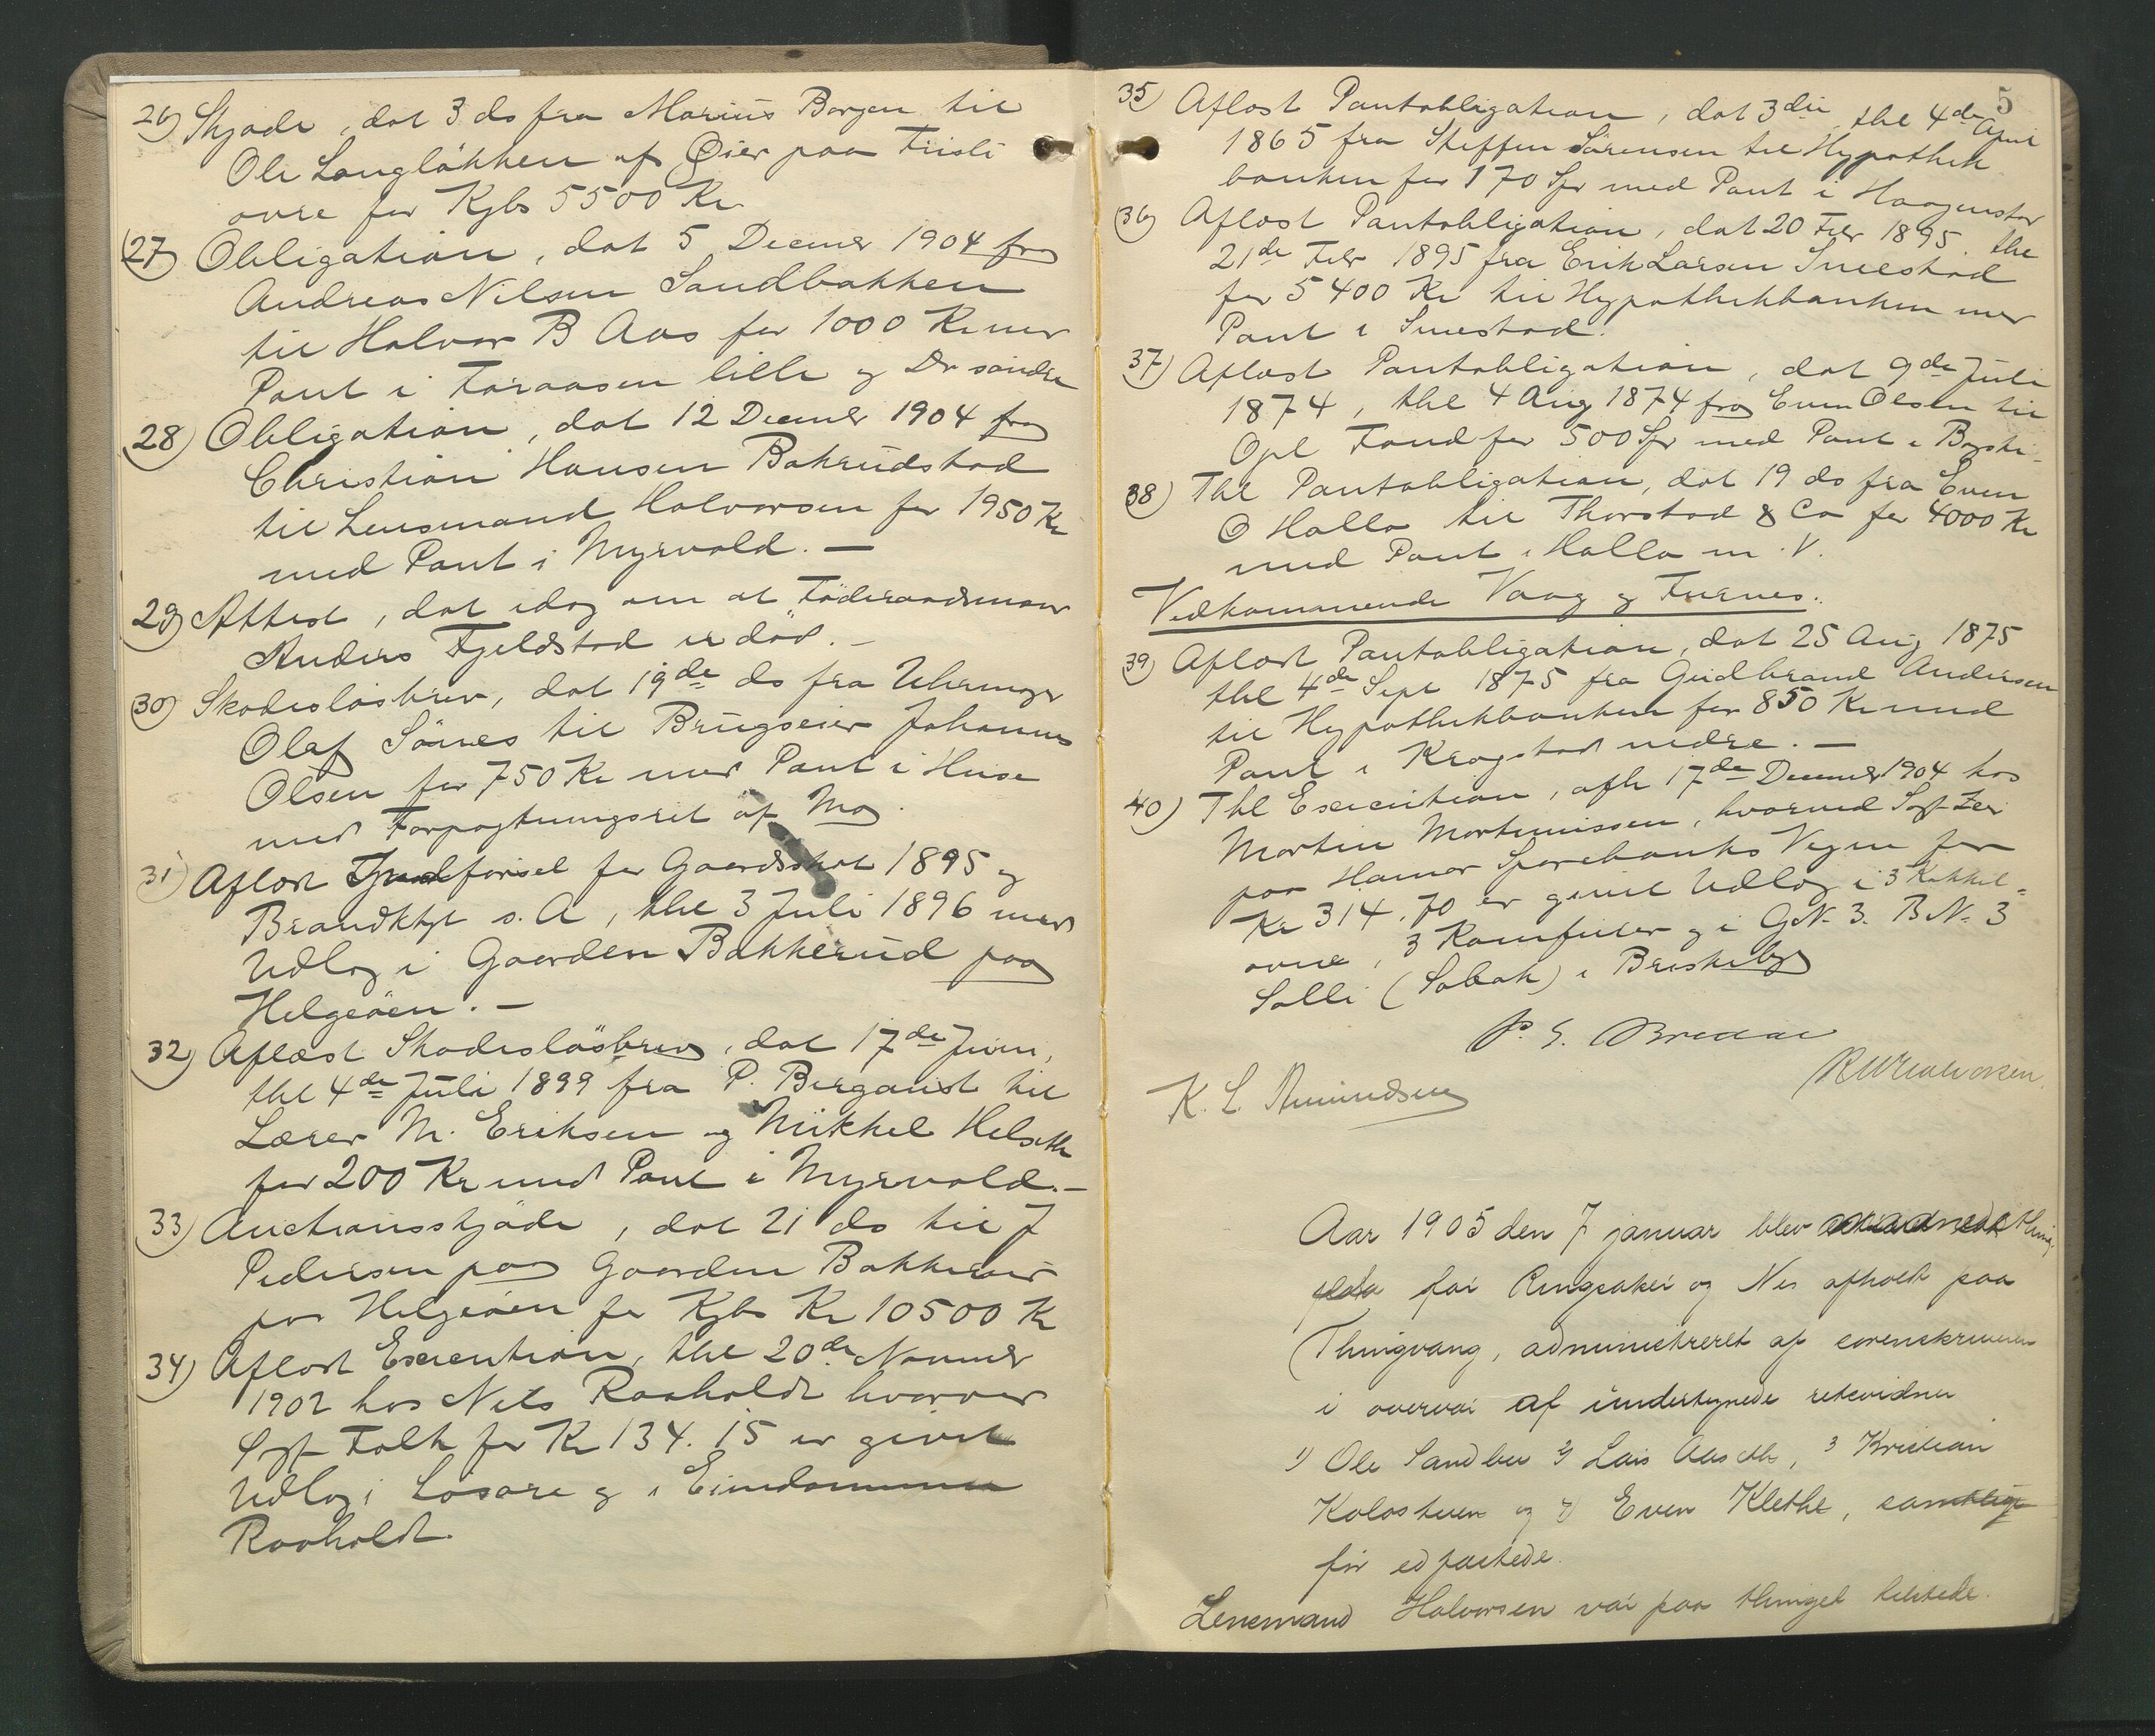 26) Skjøde, dat 3 ds fra Marius Borgen til
Ole Langløkken af Øier paa Friisli
øvre for Kjbs 5500 Kr
27) Obligation, dat 5 Decmbr 1904 fra
Andreas Nilsen Sandbakken
til Halvor B Aas for 1000 Kr mer
Pant i Foraasen lille og Do søndre
28) Obligation, dat 12 Decmbr 1904 fra
Christian Hansen Bakrudstad
til Lensmand Halvorsen for 1950 Kr
med Pant i Myrvold. —
29) Attest, dat idag om at Føderaadsmann
Anders Fjeldstad er død. —
30) Skadesløsbrev, dat 19de ds fra Uhrmager
Olaf Sørnes til Brugseier Johannes
Olsen for 750 Kr med Pant i Huse
med Forpagtningsret af Mo.
31) Aflæst for Gaardsskat 1895 og
Brandktgt s. A, thl 3 Juli 1896 med
Udlæg i Gaarden Bakkerud paa
Helgeøen. —
32) Aflæst Skadesløsbrev, dat 17de Juni,
thl 4de Juli 1899 fra P. Bergqvist til
Lærer M. Eriksen og Mikkel Helseth
for 200 Kr med Pant i Myrvold. —
33) Auctionsskjøde, dat 21 ds til J
Pedersen paa Gaarden Bakkerud
paa Helgeøen for Kjbs Kr 10500 Kr
34) Aflæst Execution, thl 20de Novmbr
1902 hos Nils Raaholdt hvorver
Sgf Falk for Kr 134.15 er givet
Udlæg i Løsøre og i Eiendommen
Raaholdt.
5
35) Aflæst Pantobligation, dat 3die thl 4de April
1865 fra Steffen Sørensen til Hypothek
banken for 170 Spr med Pant i Haagenstad
36) Aflæst Pantobligation, dat 20 Febr 1895 thl
21de Febr 1895 fra Erik Larsen Smestad
for 5400 Kr til Hypothekbanken mer
Pant i Smestad.
37) Aflæst Pantobligation, dat 9de Juli
1874, thl 4 Aug 1874 fra Even Olsen til
Opl Fond for 500 Spr med Pant i
38) Thl Pantobligation, dat 19 ds fra Even
O Halla til Thorstad & Co for 4000 Kr
med Pant i Halla m. V.
Vedkommende Vang og Furnes.
39) Aflæst Pantobligation, dat 25 Aug 1875
thl 4de Sept 1875 fra Gudbrand Andersen
til Hypothekbanken for 850 Kr med
Pant i Kragstad nedre. —
40) Thl Execution, afh 17de Decmbr 1904 hos
Martin Mortinussen, hvorved Sgf
paa Hamar Sparebanks Vegne for
Kr 314.70 er givet Udlæg i 3 Kakkel=
ovne, 3 Komfurer og i G.N. 3. B.N. 3
Solli (Solbak) i Briskeby
P. E. Bredal
K. L. Amundsen
Halvorsen.
Aar 1905 den 7 januar blev thing
for Ringsaker og Nes afholdt paa
Thingvang, administreret af sorenskriveren
i overvær af undertegnede retsvidner
1) Ole Sandbu 2) Lars Aaseth, 3 Kristian
Kolostuen og 4) Even Klethe, samtlige
før edfæstede.
Lensmand Halvorsen var paa thinget tilstede.